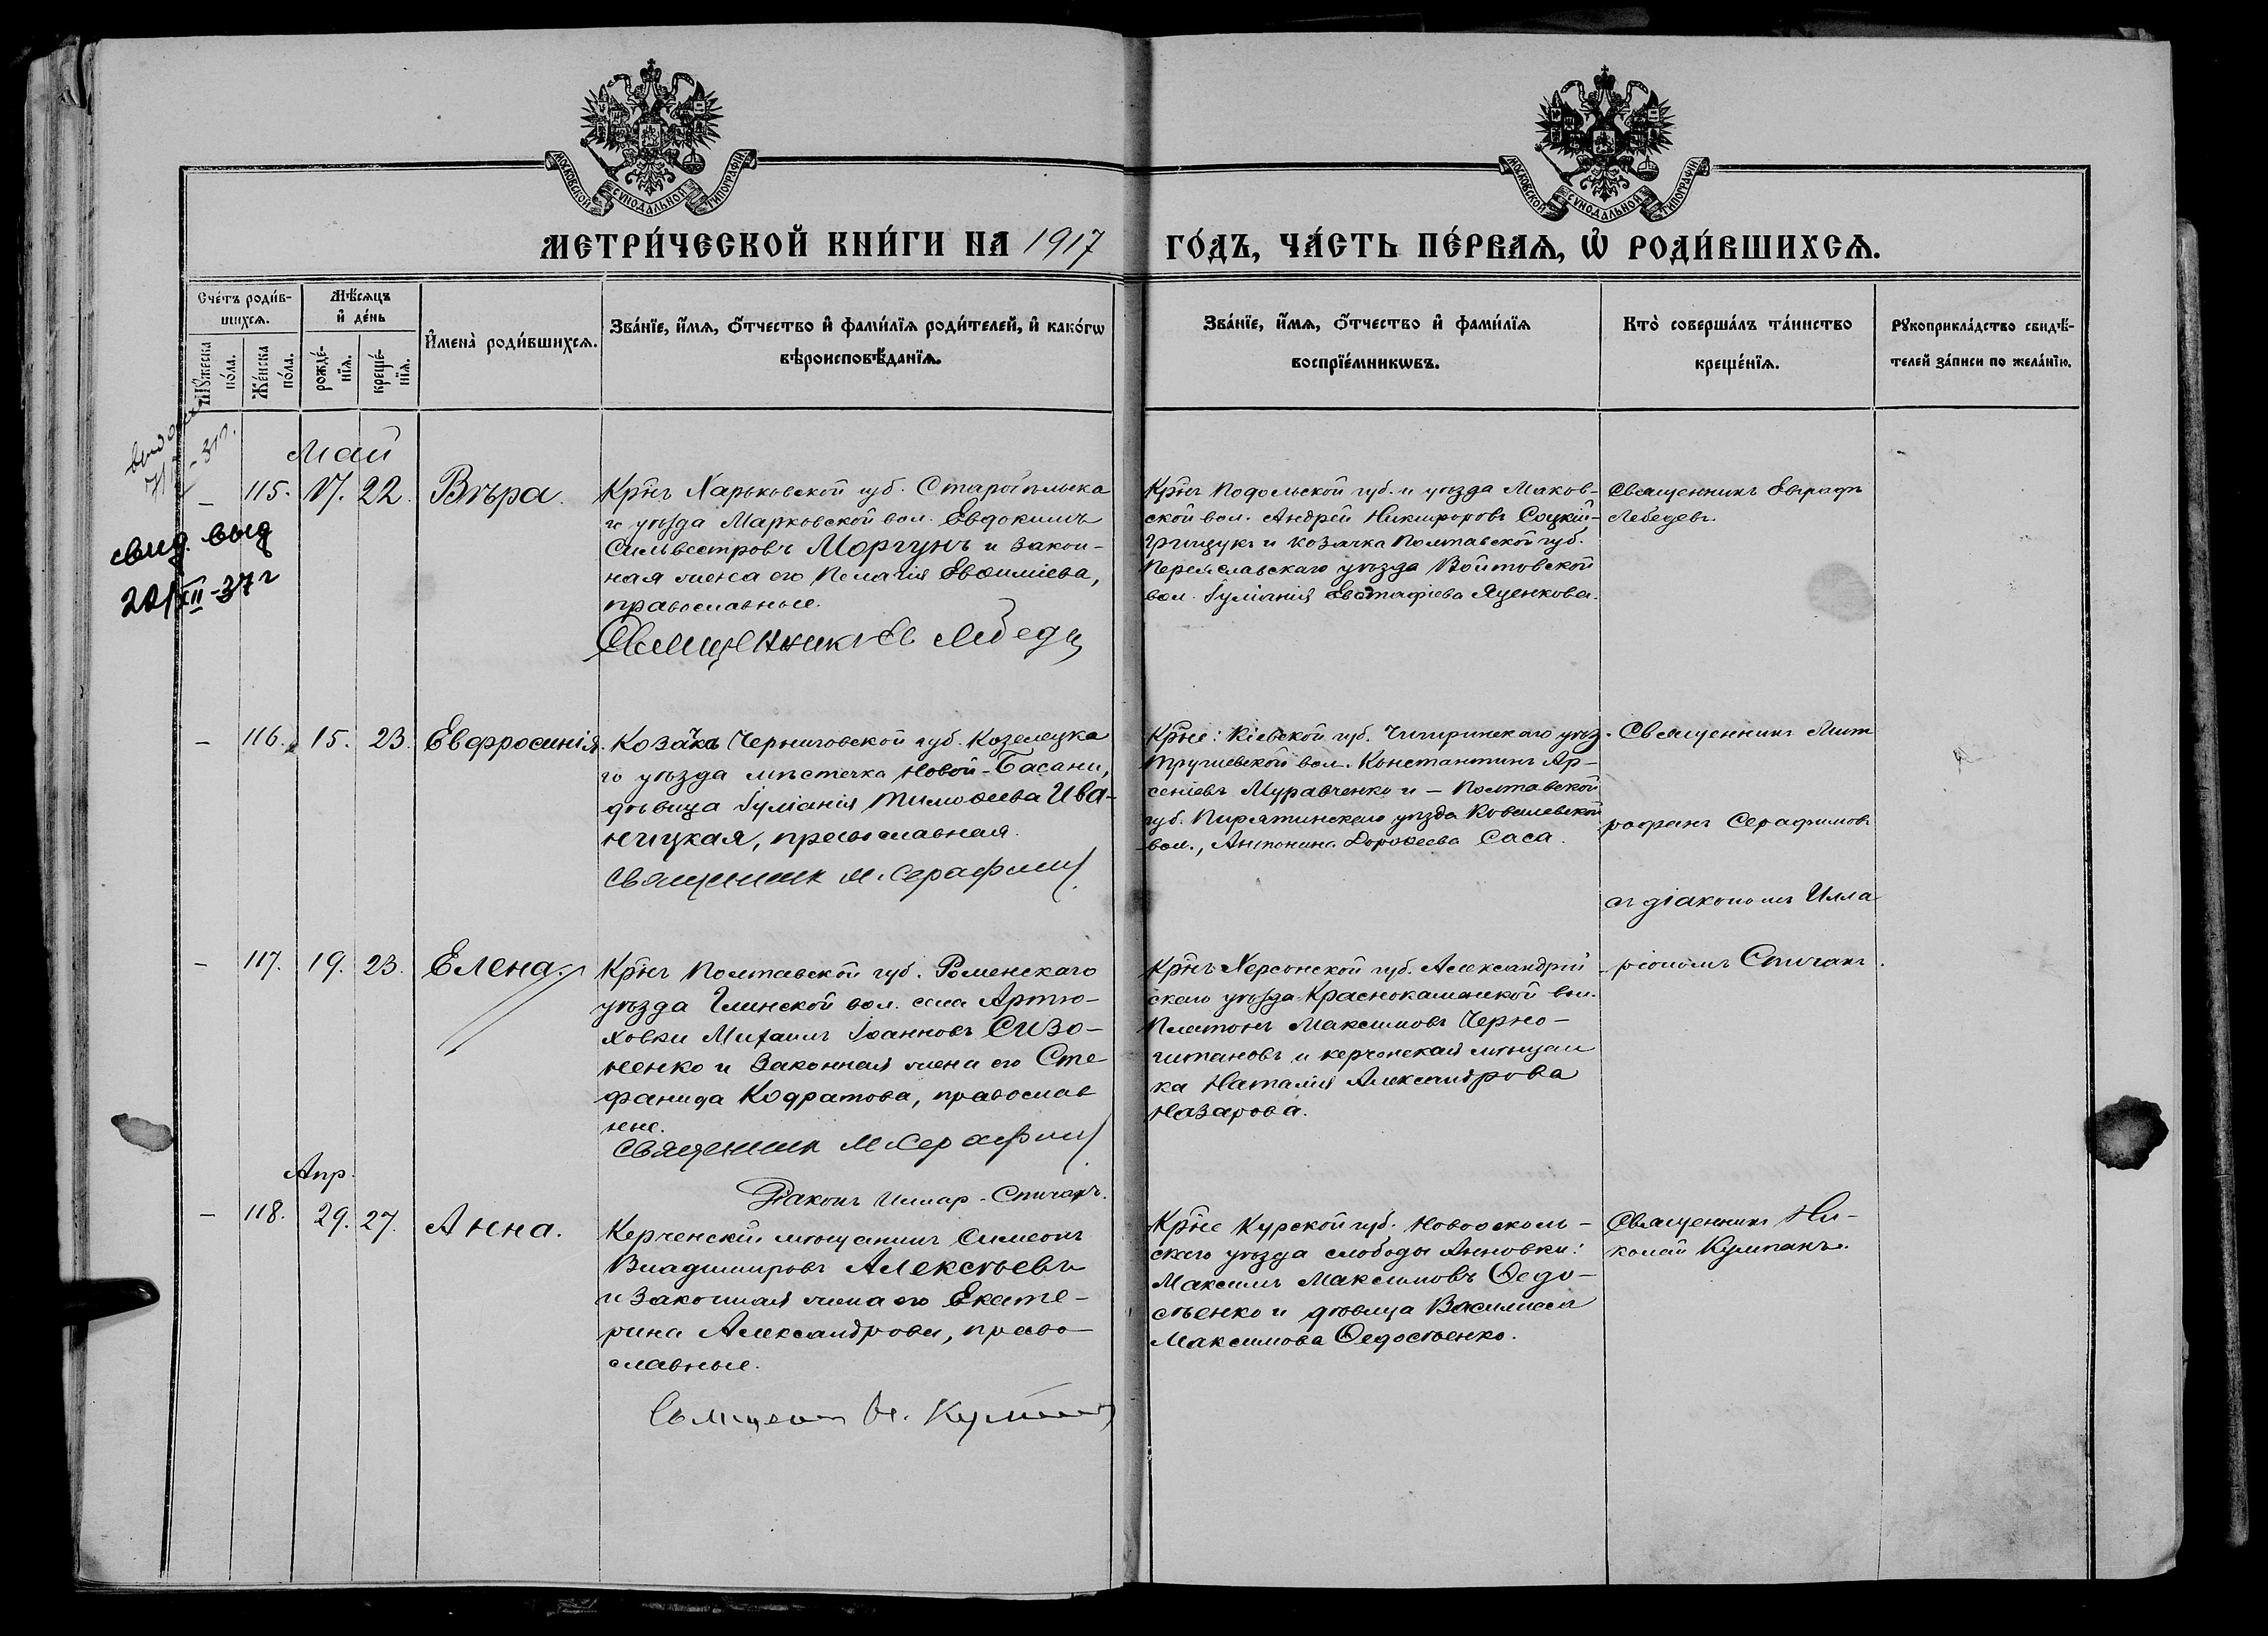 МОСКОВСКОЙ СѴНОДАЛЬНОЙ ТИПОГРАФІИ
МОСКОВСКОЙ СѴНОДАЛЬНОЙ ТИПОГРАФІИ
МЕТРИ́ЧЕСКОЙ КНИ́ГИ НА 1917 ГО́ДЪ, ЧА́СТЬ ПЕ́РВАѦ, Ѡ РОДИ́ВШИХСѦ.
Сче́тъ роди́в-
шихсѧ.
Мѣ́сѧцъ
и де́нь
Мꙋ́жеска
по́ла.
Же́нска
по́ла.
рожде́-
нїѧ.
креще́-
нїѧ.
И҆мена̀ роди́вшихсѧ.
Зва́нїе, и҆́мѧ, ѻ҆́тчество и҆ фами́лїѧ роди́телей, и҆ како́гѡ
вѣроисповѣ́данїѧ.
Зва́нїе, и҆́мѧ, ѻ҆́тчество и҆ фами́лїѧ
воспрїе́мникѡвъ.
Кто̀ соверша́лъ та́инство
креще́нїѧ.
Рꙋкоприкла́дство свидѣ́-
телей за́писи по жела́нїю.
Май
– 115. 17. 22. Вѣра.
свид. выд
22/XII-37 г
Кр̃нъ Харьковской губ. Старобѣльска
го уѣзда Марковской вол. Евдокимъ
Сильвестровъ Моргунъ и закон-
ная жена его Пелагія Евѳиміева,
православные.
Священникъ Ев Лебеде
Кр̃нъ Подольской губ. и уѣзда Маков-
ской вол. Андрей Никифоровъ Соцкій-
Грищукъ и козачка Полтавской губ.
Переяславскаго уѣзда Войтовской
вол. Іуліанія Евстафіева Яценкова.
Священникъ Евграфъ
Лебедевъ.
– 116. 15. 23. Евфросинія.
Козачка Черниговской губ. Козелецка
го уѣзда мѣстечка Новой-Басани,
дѣвица Іуліанія Тимоѳеева Ива-
ницкая, православная.
Священник М. Серафим
Кр̃не: Кіевской губ. Чигиринскаго уѣз.
вол. Константинъ Ар-
сеніевъ Муравченко и – Полтавской
губ. Пирятинскаго уѣзда Ковалевской
вол., Антонина Дороѳеева Саса.
Священникъ Мит
рофанъ Серафимовъ
съ діакономъ Илла
ріономъ Спичакъ.
– 117. 19. 23. Елена.
Кр̃нъ Полтавской губ. Роменскаго
уѣзда Глинской вол. села Артю-
ховки Михаилъ Іоанновъ Сизо-
ненко и законная жена его Сте
фанида Кодратова, православ
ные.
Священник М Серафим
Діаконъ Иллар. Спичакъ.
Кр̃нъ Херсонской губ. Александрій
скаго уѣзда Краснокаменской вол.
Платонъ Максимовъ Черно-
штановъ и керченская мѣщан
ка Наталія Александрова
Назарова.
Апр.
– 118. 29. 27. Анна.
Керченскій мѣщанинъ Симеонъ
Владимировъ Алексѣевъ
и законная жена его Екате-
рина Александрова, право
славные.
Священ Н. Кумпан
Кр̃не Курской губ. Новоосколь-
скаго уѣзда слободы Анновки:
Максимъ Максимовъ Ѳедо-
сѣенко и дѣвица Василиса
Максимова Ѳедосѣенко.
Священникъ Ни-
колай Кумпанъ.